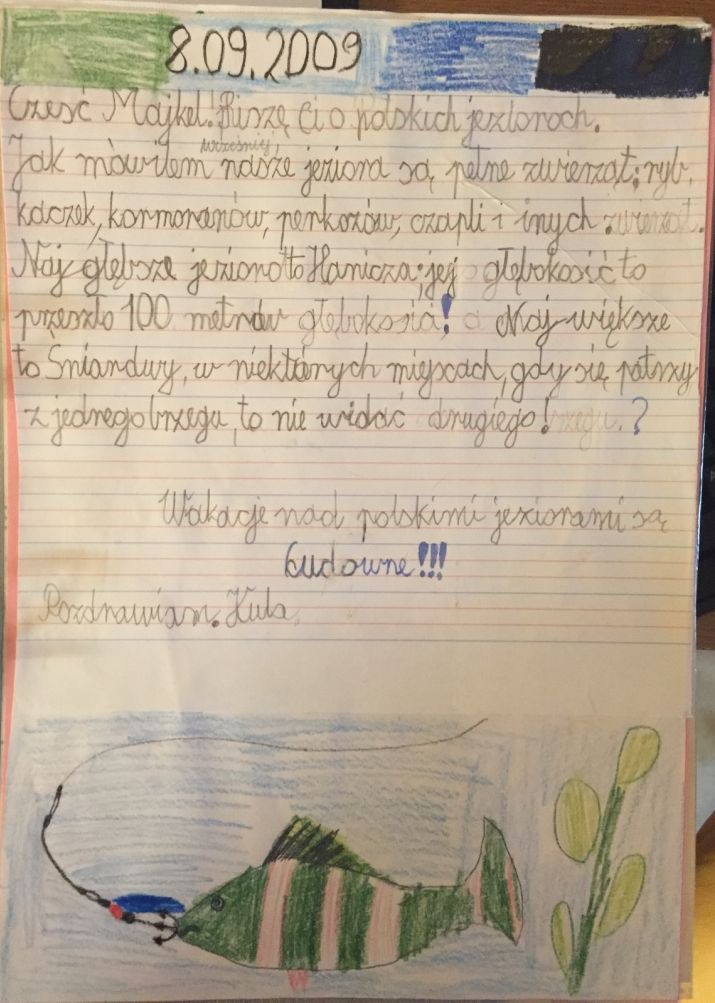 8.09.2009
Cześć Majkel! Piszę Ci o polskich jeziorach.
wcześniej,
Jak mówiłem nasze jeziora są pełne zwierząt: ryb,
kaczek, kormoranów, perkozów, czapli i inych zwierzat.
Naj głębsze jezioro to Hanicza: jej głębokość to
przeszło 100 metrów głębokosia! a Naj większe
to Śniardwy, w niektórych miejscach, gdy się patrzy
z jednego brzegu, to nie widać drugiego! brzegu.?
Wakacje nad polskimi jeziorami są
Cudowne!!!
Pozdrawiam. Kuba.